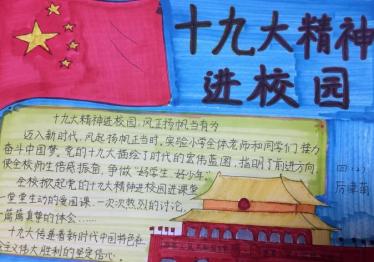 十九大精神
进校园
十九大精神进校园,风正扬帆当有为
迈入新时代,风起扬帆正当时,实验小学全体老师和同学们接力
奋斗中国梦,党的十九大描绘了时代的宏伟蓝图,指明了前进方向,
使全校师生倍感振奋,争做“好学生、好少年”
全校掀起党的十九大精神进校园进课堂
一堂堂生动的爱国课,一次次热烈的讨论,
一篇篇真挚的体会……
十九大传递着新时代中国特色社
会主义伟大胜利的坚定信心。
四(2)